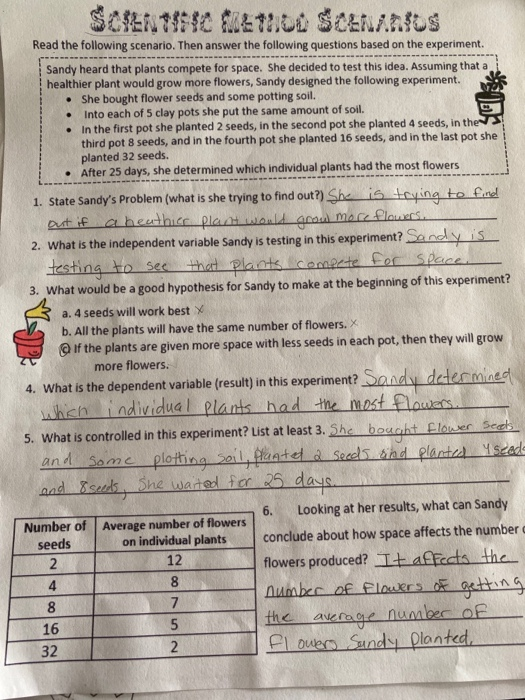 SCIENTIFIC METHOD SCENARIOS
Read the following scenario. Then answer the following questions based on the experiment.
Sandy heard that plants compete for space. She decided to test this idea. Assuming that a
healthier plant would grow more flowers, Sandy designed the following experiment.
• She bought flower seeds and some potting soil.
• Into each of 5 clay pots she put the same amount of soil.
• In the first pot she planted 2 seeds, in the second pot she planted 4 seeds, in the
third pot 8 seeds, and in the fourth pot she planted 16 seeds, and in the last pot she
planted 32 seeds.
• After 25 days, she determined which individual plants had the most flowers
1. State Sandy's Problem (what is she trying to find out?) She is trying to find
out if a heuthier plant would grow more flowers.
2. What is the independent variable Sandy is testing in this experiment? Sandy is
testing to see that plants compete for space.
3. What would be a good hypothesis for Sandy to make at the beginning of this experiment?
a. 4 seeds will work best x
b. All the plants will have the same number of flowers. x
c If the plants are given more space with less seeds in each pot, then they will grow
more flowers.
4. What is the dependent variable (result) in this experiment? Sandy determined
which individual plants had the most flowers.
5. What is controlled in this experiment? List at least 3. She bought flower seeds
and some plotting soil, planted 2 seeds and planted 4 seeds
and 8 seeds, She waited for 25 days.
6. Looking at her results, what can Sandy
conclude about how space affects the number
flowers produced? It affects the
number of flowers of getting
the average number of
flowers Sandy planted.
Number of seeds Average number of flowers on individual plants
2 12
4 8
8 7
16 5
32 2